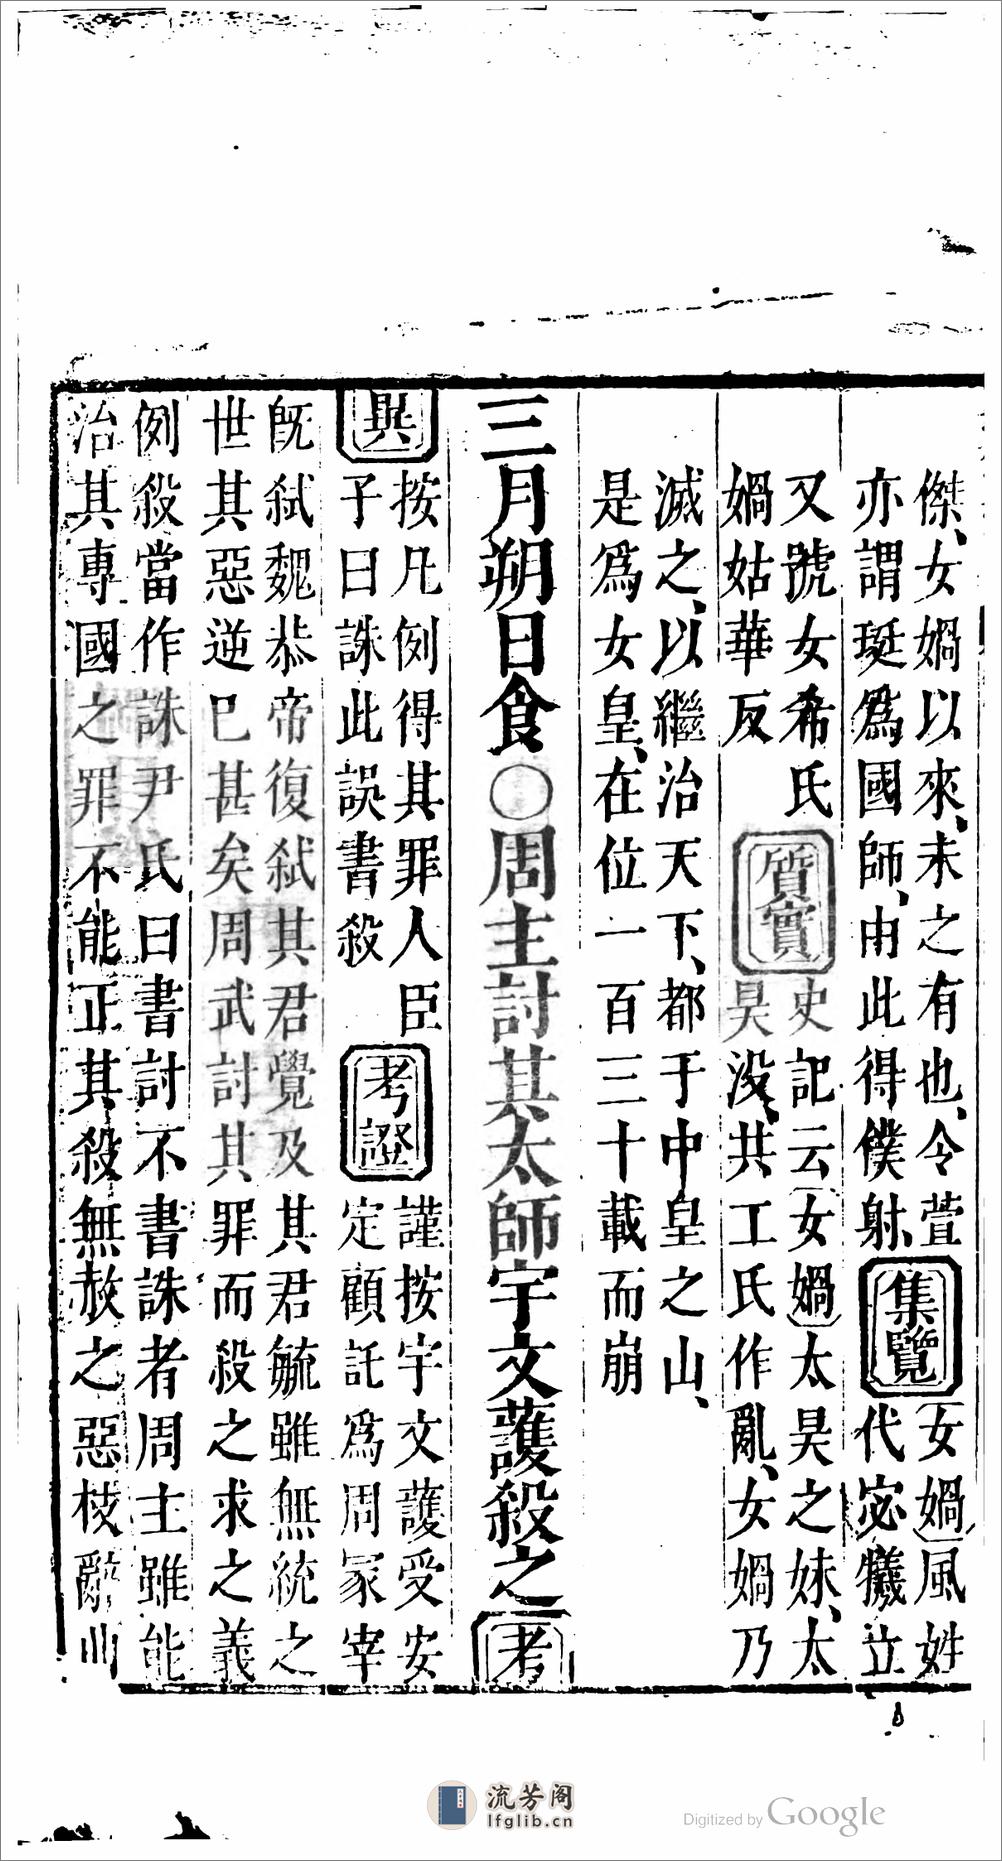 傑、女媧以來、未之有也、令萱
亦謂珽爲國師、由此得僕射
集覽
女媧風姓
代宓犧立
又號女希氏
媧姑華反
質實
史記云女媧太昊之妹、太
昊没、共工氏作亂、女媧乃
滅之、以繼治天下、都于中皇之山、
是爲女皇、在位一百三十載而崩
三月朔日食○周主討其太師宇文護殺之
考
異
按凡例得其罪人臣
子曰誅此誤書殺
考證
謹按宇文護受安
定顧託爲周冢宰
旣弑魏恭帝復弑其君覺及其君毓雖無統之
世其惡逆已甚矣周武討其罪而殺之求之義
例殺當作誅尹氏曰書討不書誅者周主雖能
治其專國之罪不能正其殺無赦之惡枝辭
流芳阁
lfglib.cn
Digitized by Google